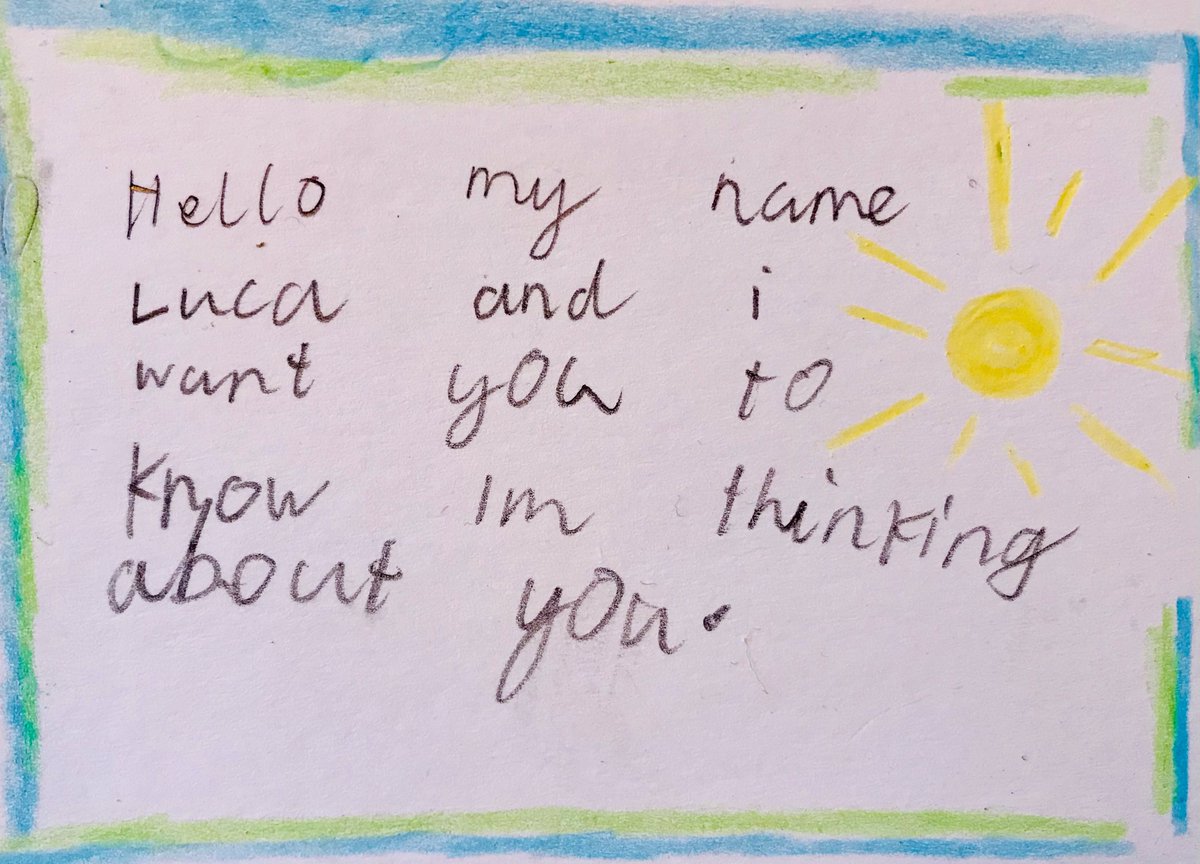 Hello my name
Luca and i
want you to
know im thinking
about you.